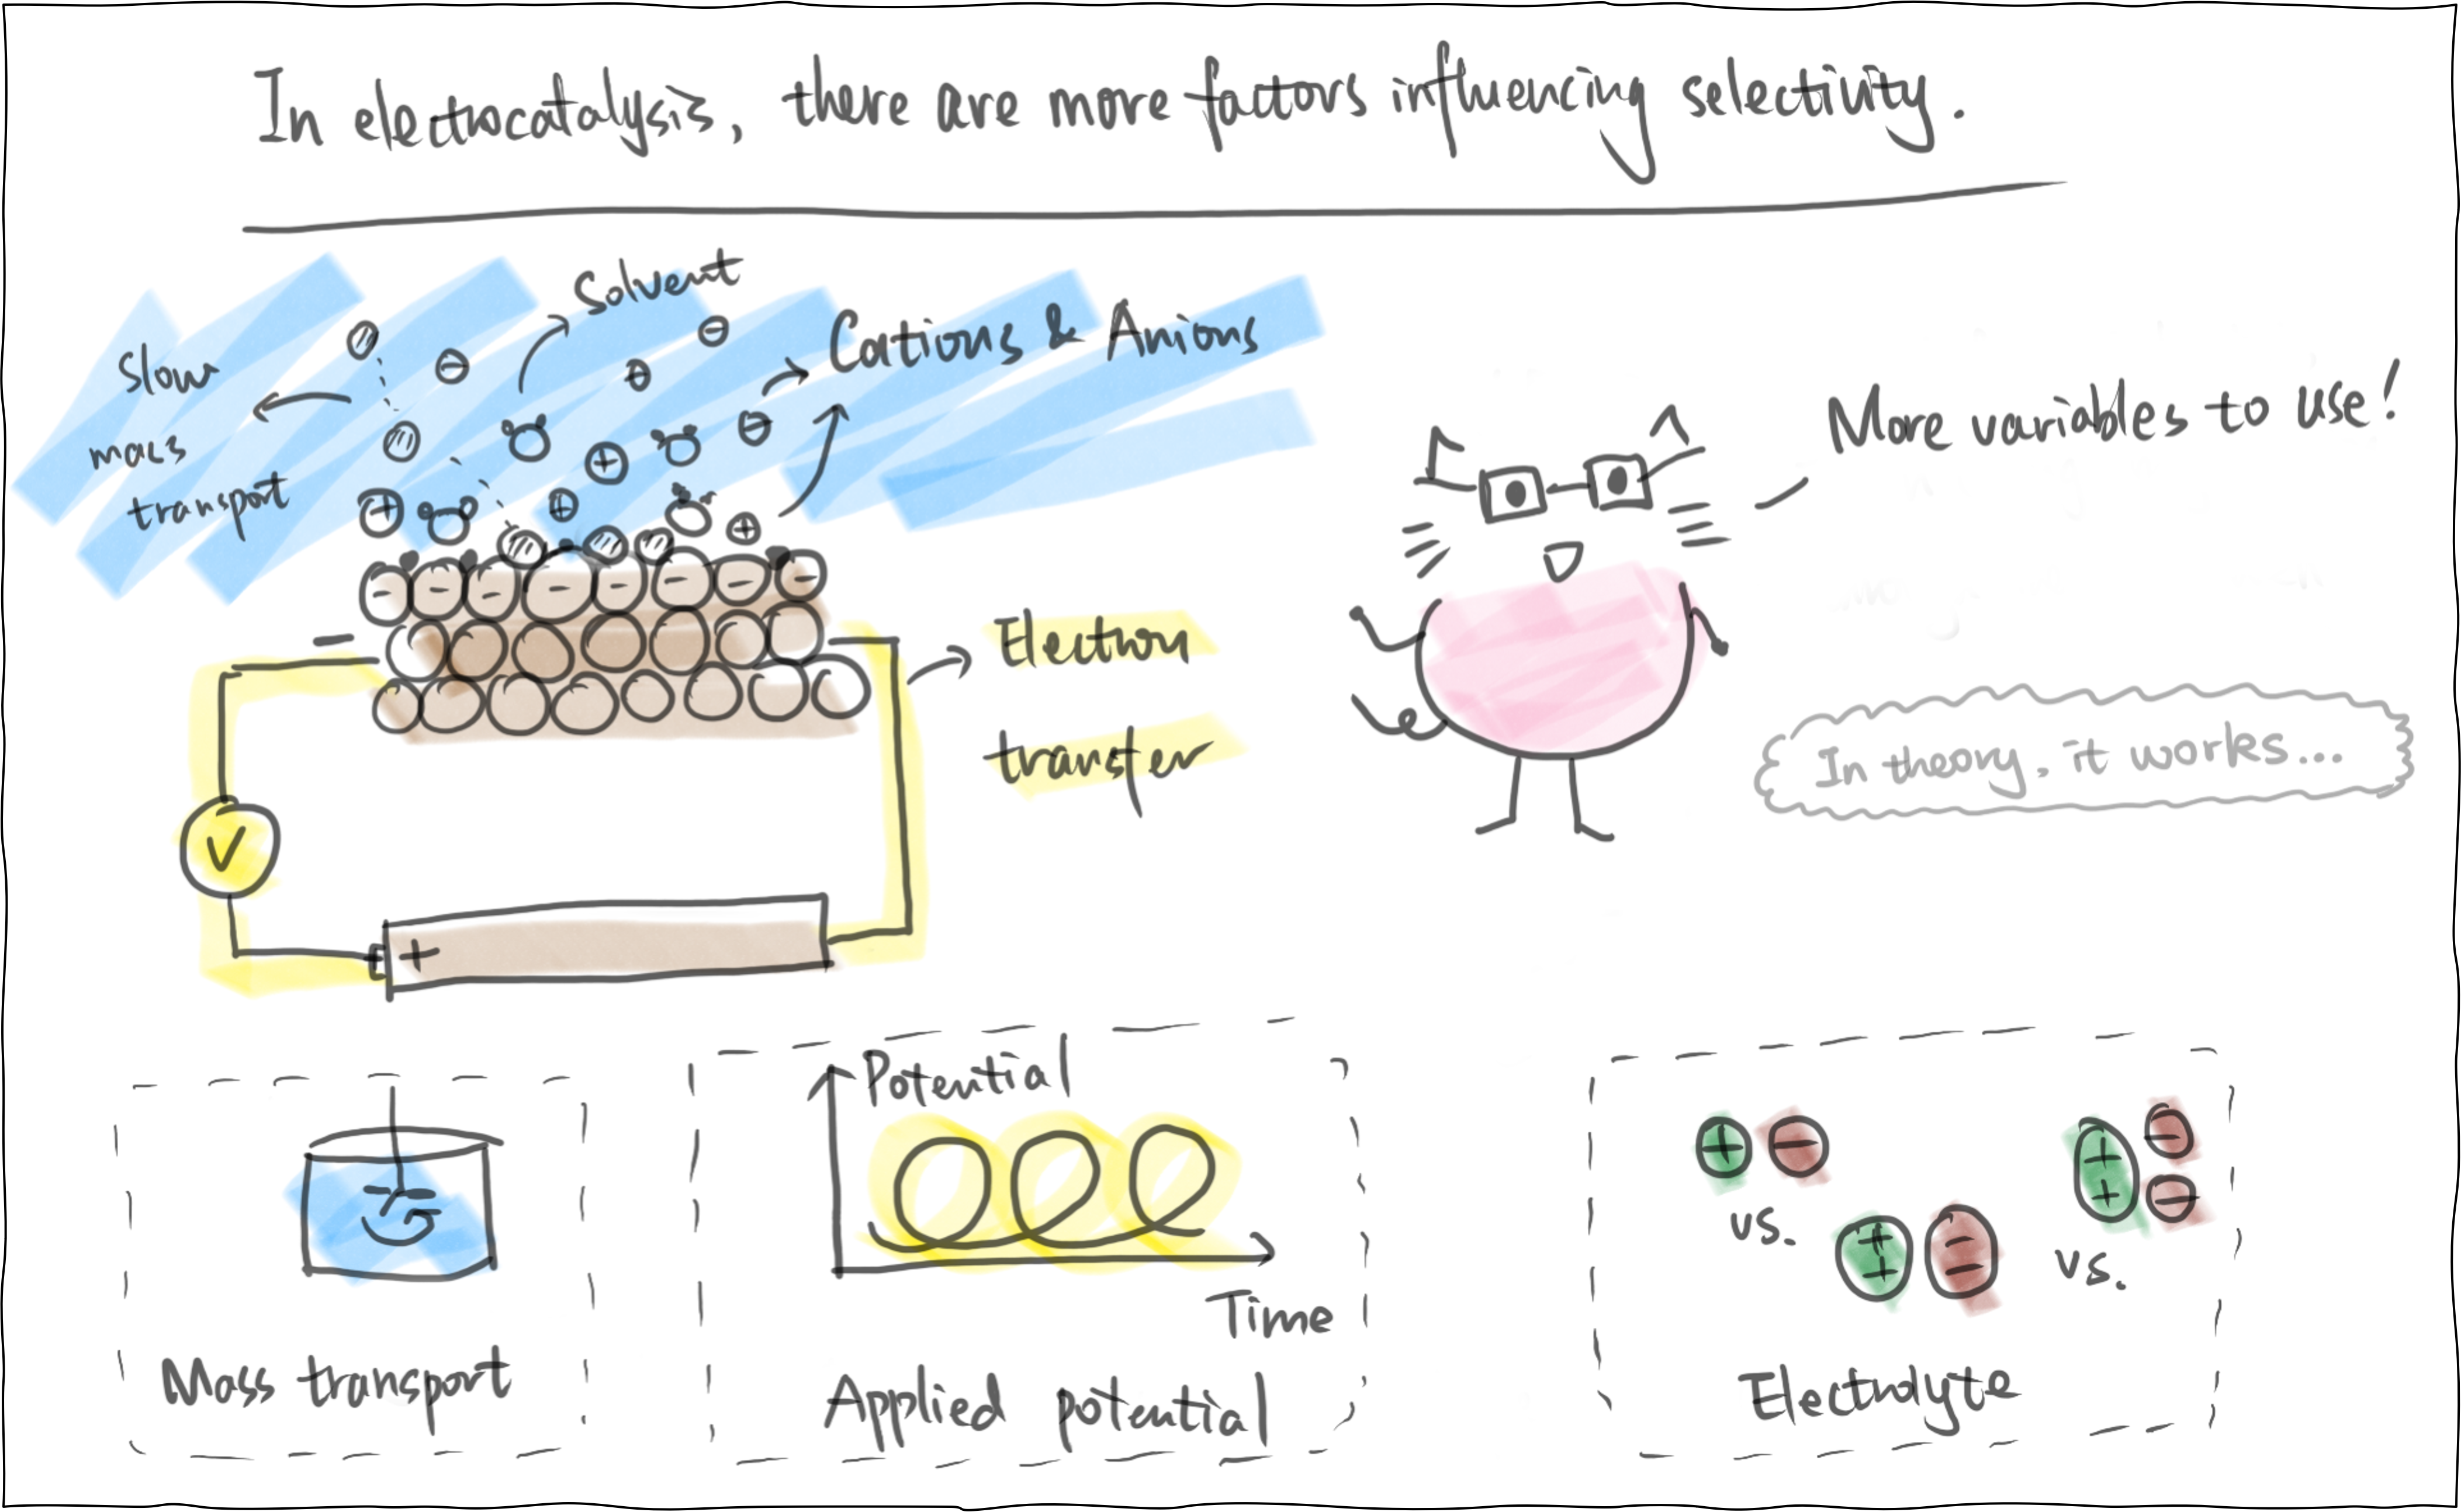 In electrocatalysis, there are more factors influencing selectivity.
Solvent
Cations & Anions
Slow
mass
transport
More variables to use!
Electron
transfer
In theory, it works...
V
+
Potential
Time
Mass transport
Applied potential
vs.
vs.
Electrolyte